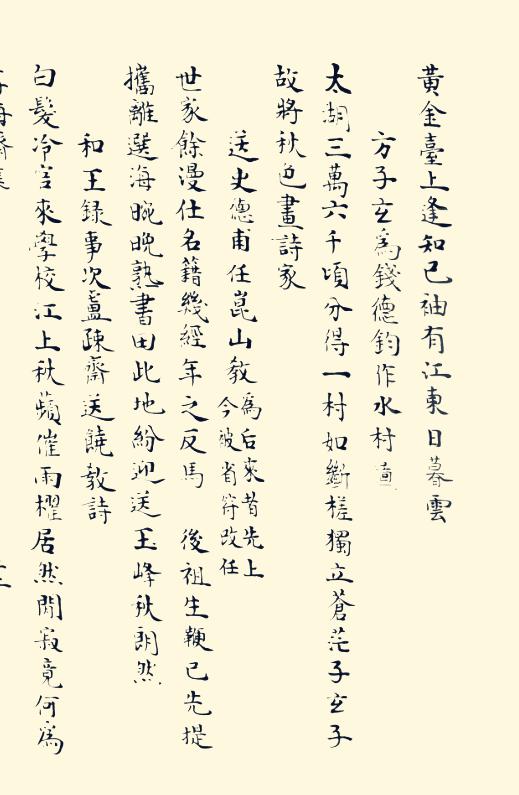 黃金臺上逢知己袖有江東日暮雲
方子玄為錢德鈞作水村
太湖三萬六千頃分得一村如斷槎獨立蒼茫子玄子
故將秋色畫詩家
送史德甫任崑山教
為后來昔先上
今被省符改任
世家餘漫仕名籍幾經年之反馬 後祖生鞭已先提
攜離選海晼晚熟書田此地紛迎送玉峰秋朗然
和王錄事次盧疎齋送饒教詩
白髮冷官來學校江上秋蘋催雨櫂居然閒寂竟何為